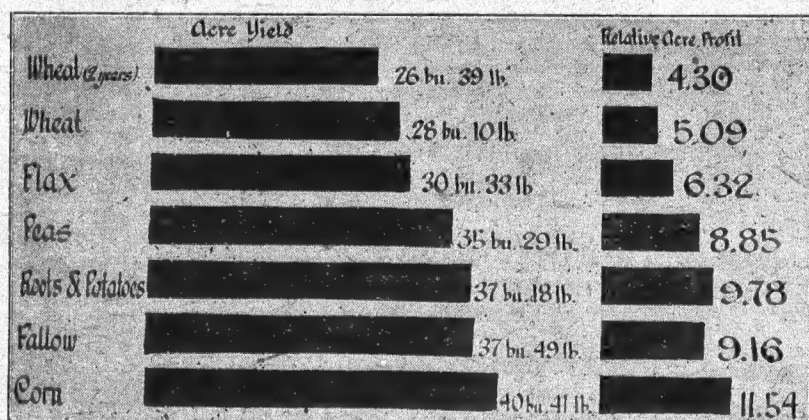 Acre Yield Relative Acre Profit
Wheat (2 years) 26 bu. 39 lb. 4.30
Wheat 28 bu. 10 lb. 5.09
Flax 30 bu. 33 lb 6.32
Peas 35 bu. 29 lb. 8.85
Roots & Potatoes 37 bu. 18 lb. 9.78
Fallow 37 bu. 49 lb. 9.16
Corn 40 bu. 41 lb. 11.54